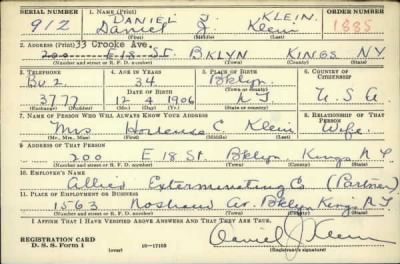 SERIAL NUMBER 1. NAME (Print) ORDER NUMBER
DANIEL J. KLEIN.
912 Daniel J. Klein 1885
(First) (Middle) (Last)
2. ADDRESS (Print) 33 Crooke Ave.
200 E 18 ST. BKLYN KINGS NY
(Number and street or R. F. D. number) (Town) (County) (State)
3. TELEPHONE 4. AGE IN YEARS 5. PLACE OF BIRTH 6. COUNTRY OF CITIZENSHIP
Bu 2 34 Bklyn.
DATE OF BIRTH (Town or county)
3777 12 4 1906 N.Y. U.S.A
(Exchange) (Number) (Mo.) (Day) (Yr.) (State or country)
7. NAME OF PERSON WHO WILL ALWAYS KNOW YOUR ADDRESS 8. RELATIONSHIP OF THAT PERSON
Mrs Hortense C. Klein Wife.
(Mr., Mrs., Miss) (First) (Middle) (Last)
9. ADDRESS OF THAT PERSON
200 E 18 St. Bklyn. Kings N.Y
(Number and street or R. F. D. number) (Town) (County) (State)
10. EMPLOYER'S NAME
Allied Exterminating Co (Partner)
11. PLACE OF EMPLOYMENT OR BUSINESS
1563 Nostrand Av. Bklyn Kings N.Y
(Number and street or R. F. D. number) (Town) (County) (State)
I AFFIRM THAT I HAVE VERIFIED ABOVE ANSWERS AND THAT THEY ARE TRUE.
REGISTRATION CARD
D. S. S. Form 1 (over) 16—17105 Daniel J Klein
(Registrant's signature)